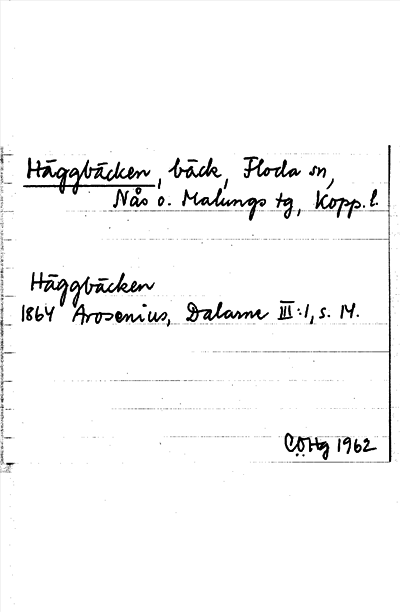 Häggbäcken, bäck, Floda sn,
Nås o. Malungs tg, Kopp. l.
Häggbäcken
1864 Arosenius, Dalarne III:1, s. 14.
CÖHg 1962